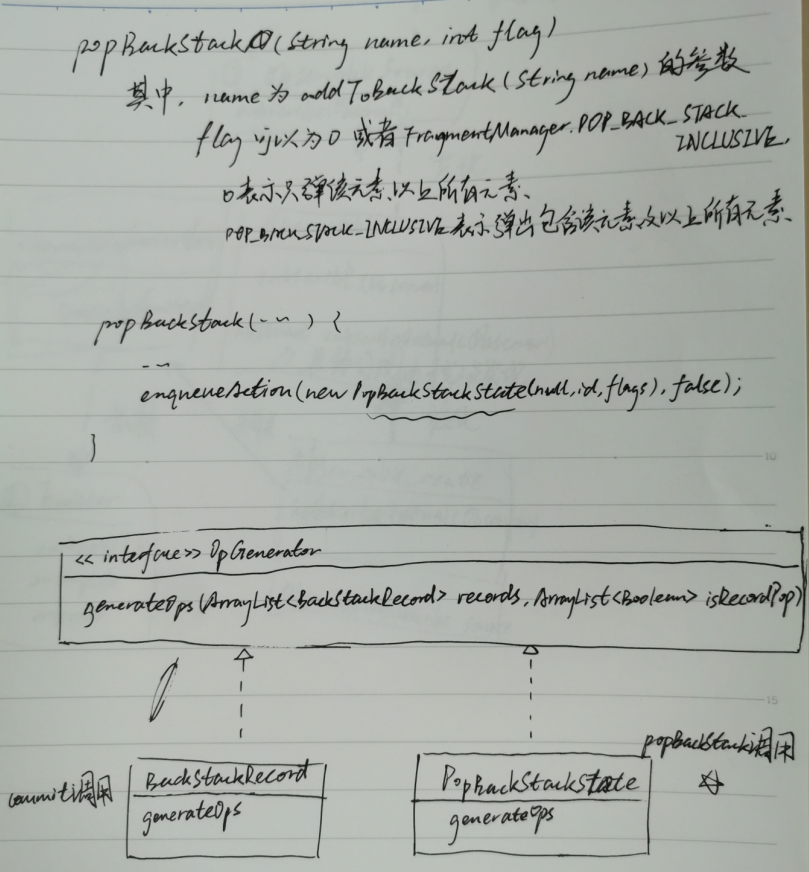 popBackStack(String name, int flag)
其中, name为addToBackStack(String name)的参数
flag可以为0 或者FragmentManager.POP_BACK_STACK_
INCLUSIVE,
0表示只弹该元素以上所有元素、
POP_BACK_STACK_INCLUSIVE表示弹出包含该元素及以上所有元素、
popBackStack(...) {
...
enqueueAction(new PopBackStackState(null,id,flags),false);
}
<< interface>> OpGenerator
generateOps(ArrayList<BackStackRecord> records, ArrayList<Boolean> isRecordPop)
commit调用
BackStackRecord
generateOps
PopBackStackState
generateOps
popBackStack调用
10
15